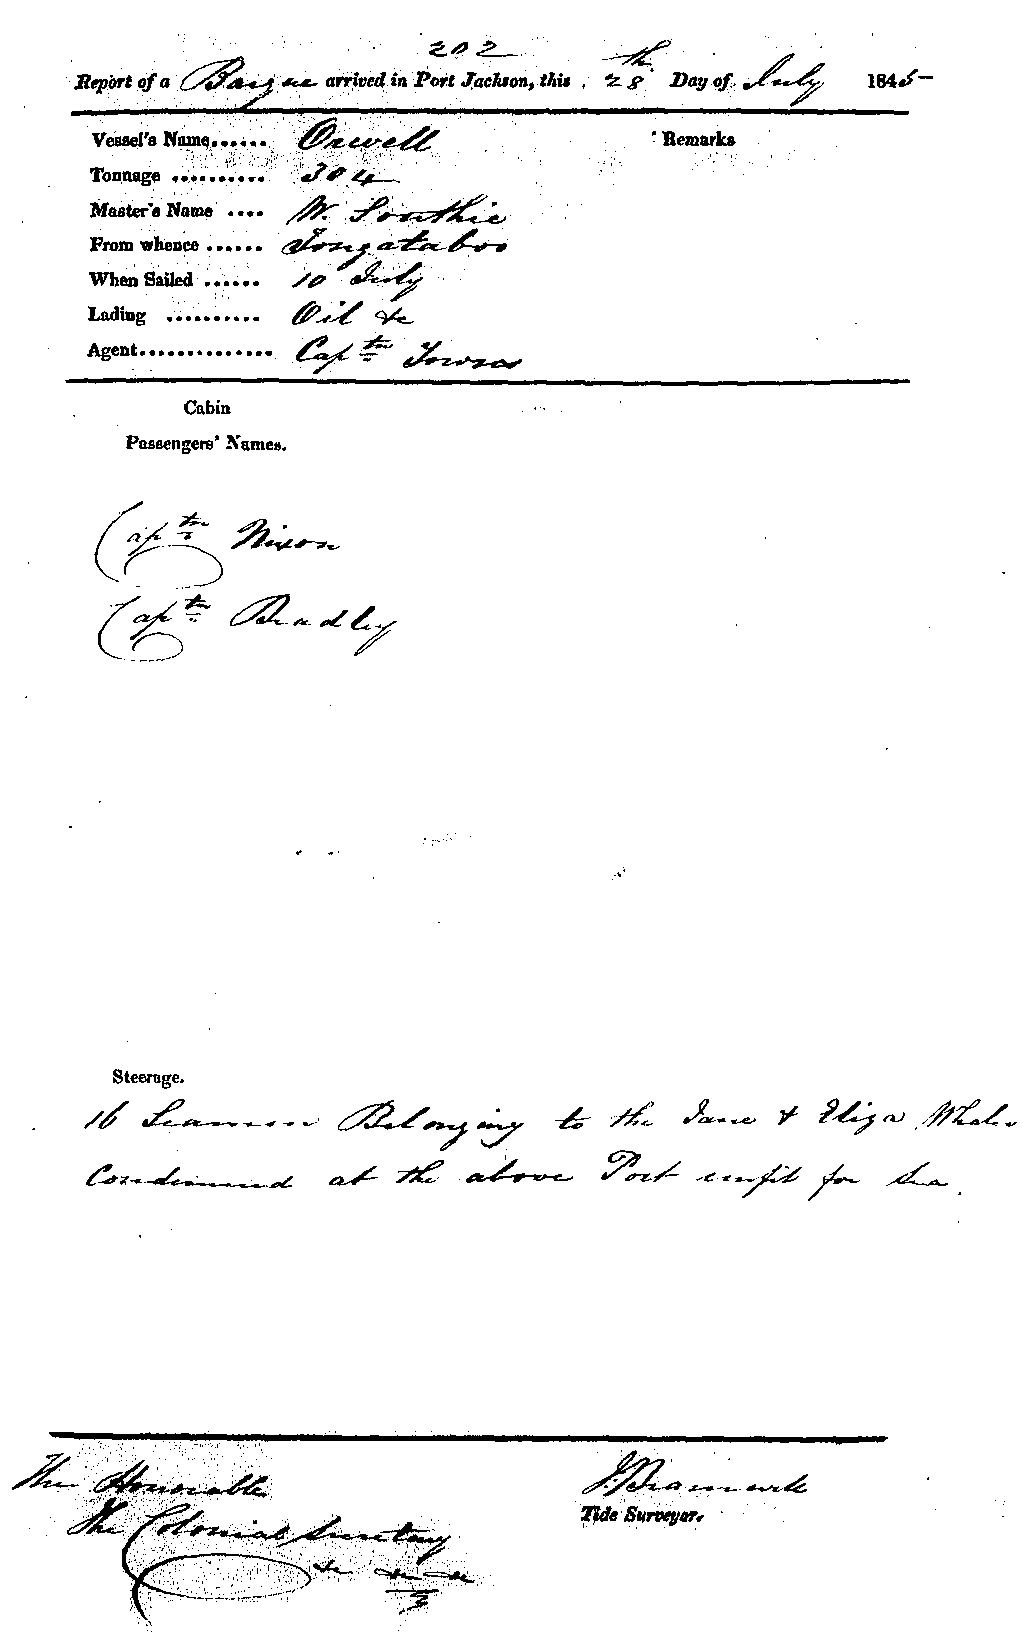 202
Report of a Barque arrived in Port Jackson, this 28th Day of July 1845
Vessel's Name...... Orwell
Remarks
Tonnage .......... 304
Master's Name .... W. Southie
From whence ...... Tongataboo
When Sailed ...... 10 July
Lading .......... Oil &c
Agent.............. Captn Towns
Cabin
Passengers' Names.
Captn Nixon
Captn Bradley
Steerage.
16 Seamen Belonging to the Jane & Eliza Whaler
Condemned at the above Port unfit for Sea
The Honorable
The Colonial Secretary
&c &c &c
Tide Surveyor.